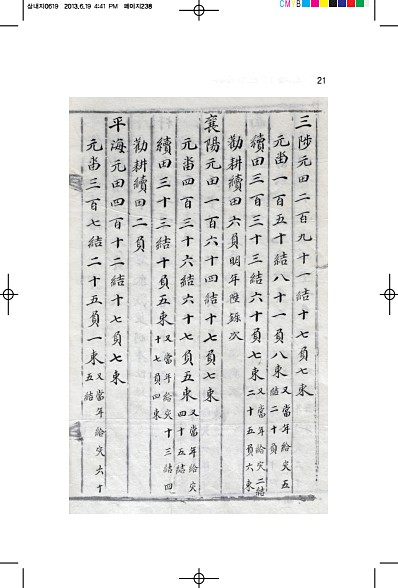 삼내지0619 2013.6.19 4:41 PM 페이지238
CMYB
21
三陟元田二百九十一結十七負七束
元畓一百五十結八十一負八束又當年給灾五結二十負
續田三百三十三結六十負七束又當年給灾二結二十五負六束
勸耕續田六負明年陞錄次
襄陽元田一百六十四結十七負七束
元畓四百三十六結六十七負五束又當年給灾四十五結
續田三十三結十負五束又當年給灾十三結四十七負四束
勸耕續田二負
平海元田四百十二結十七負七束
元畓三百七結二十五負一束又當年給灾六十五結